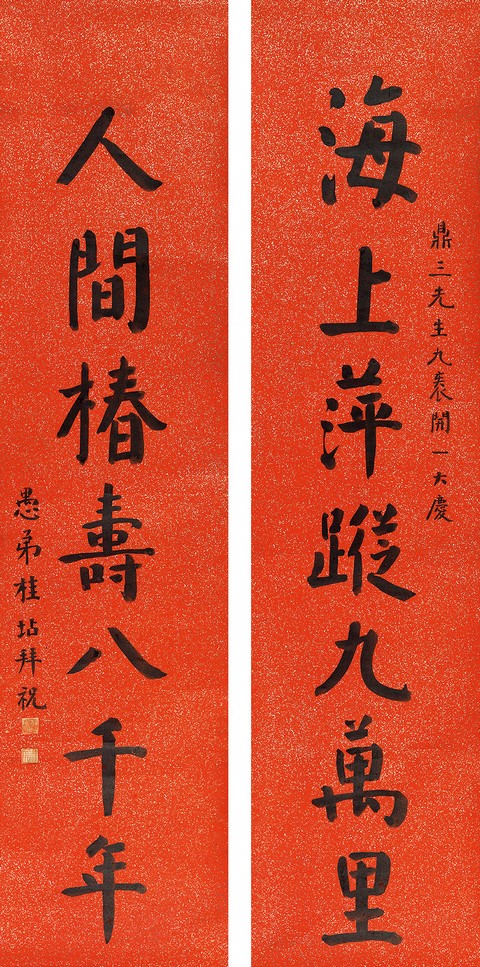 鼎三先生九袠開一大慶
海上萍蹤九萬里
人間椿壽八千年
愚弟桂坫拜祝